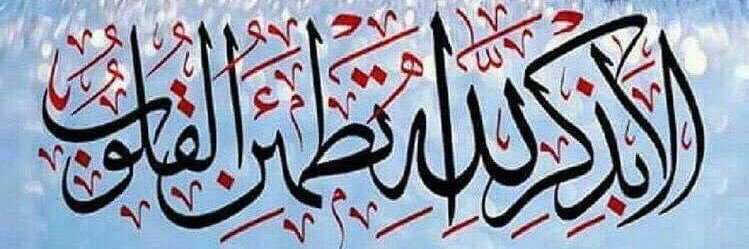 ألا بِذِكْرِ اللَّهِ تَطْمَئِنُّ الْقُلُوبُ